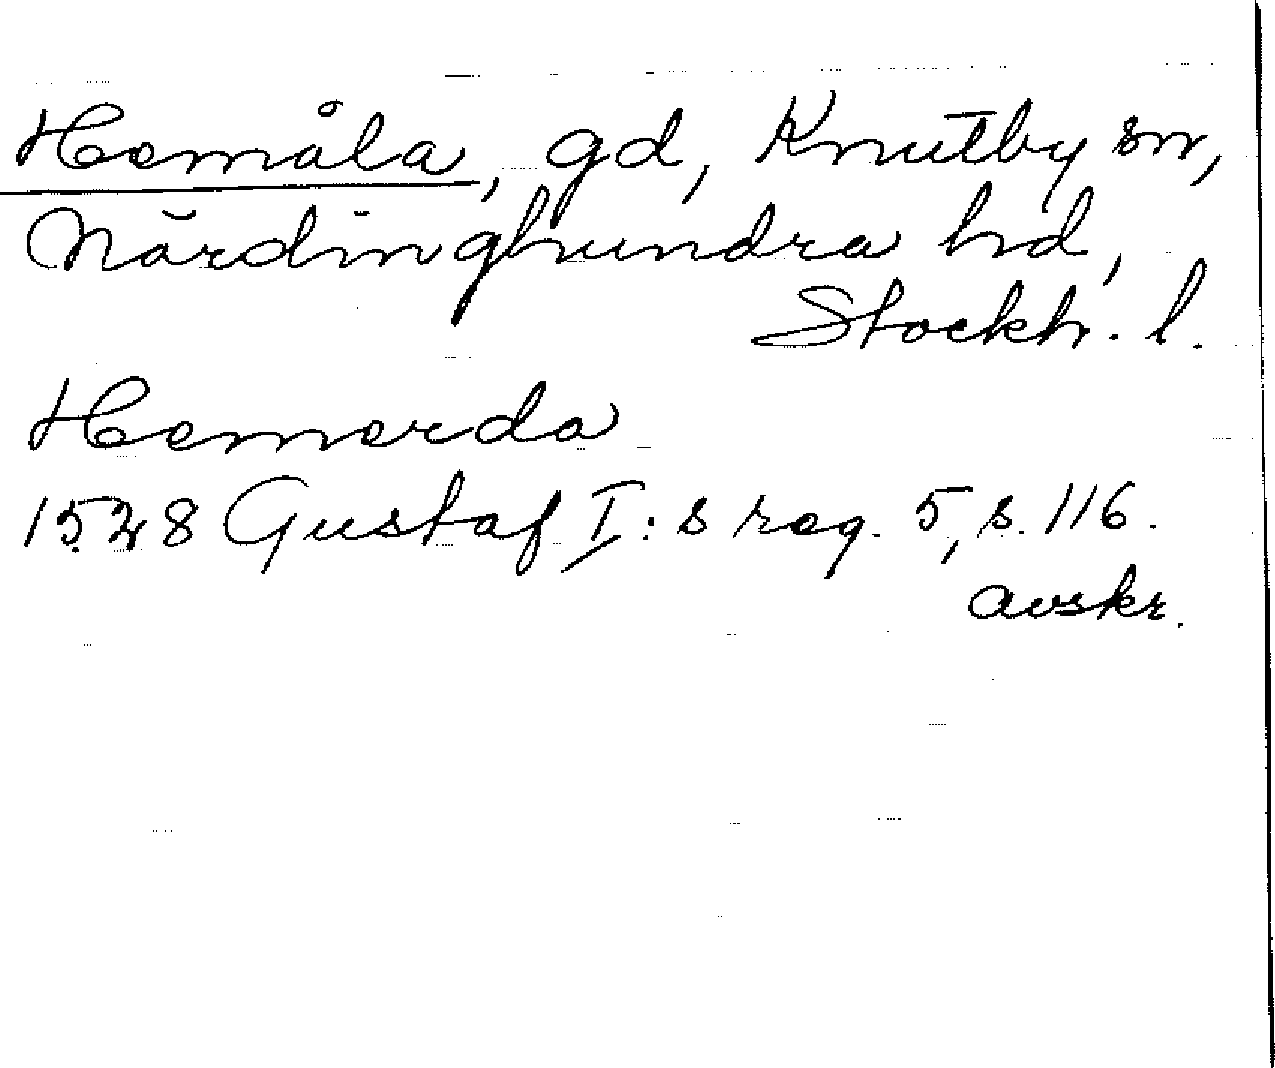 Hemåla, gd, Knutby sn,
Närdinghundra hd,
Stockh. l.
Hemerda
1528 Gustaf I:s reg. 5, s. 116.
avskr.